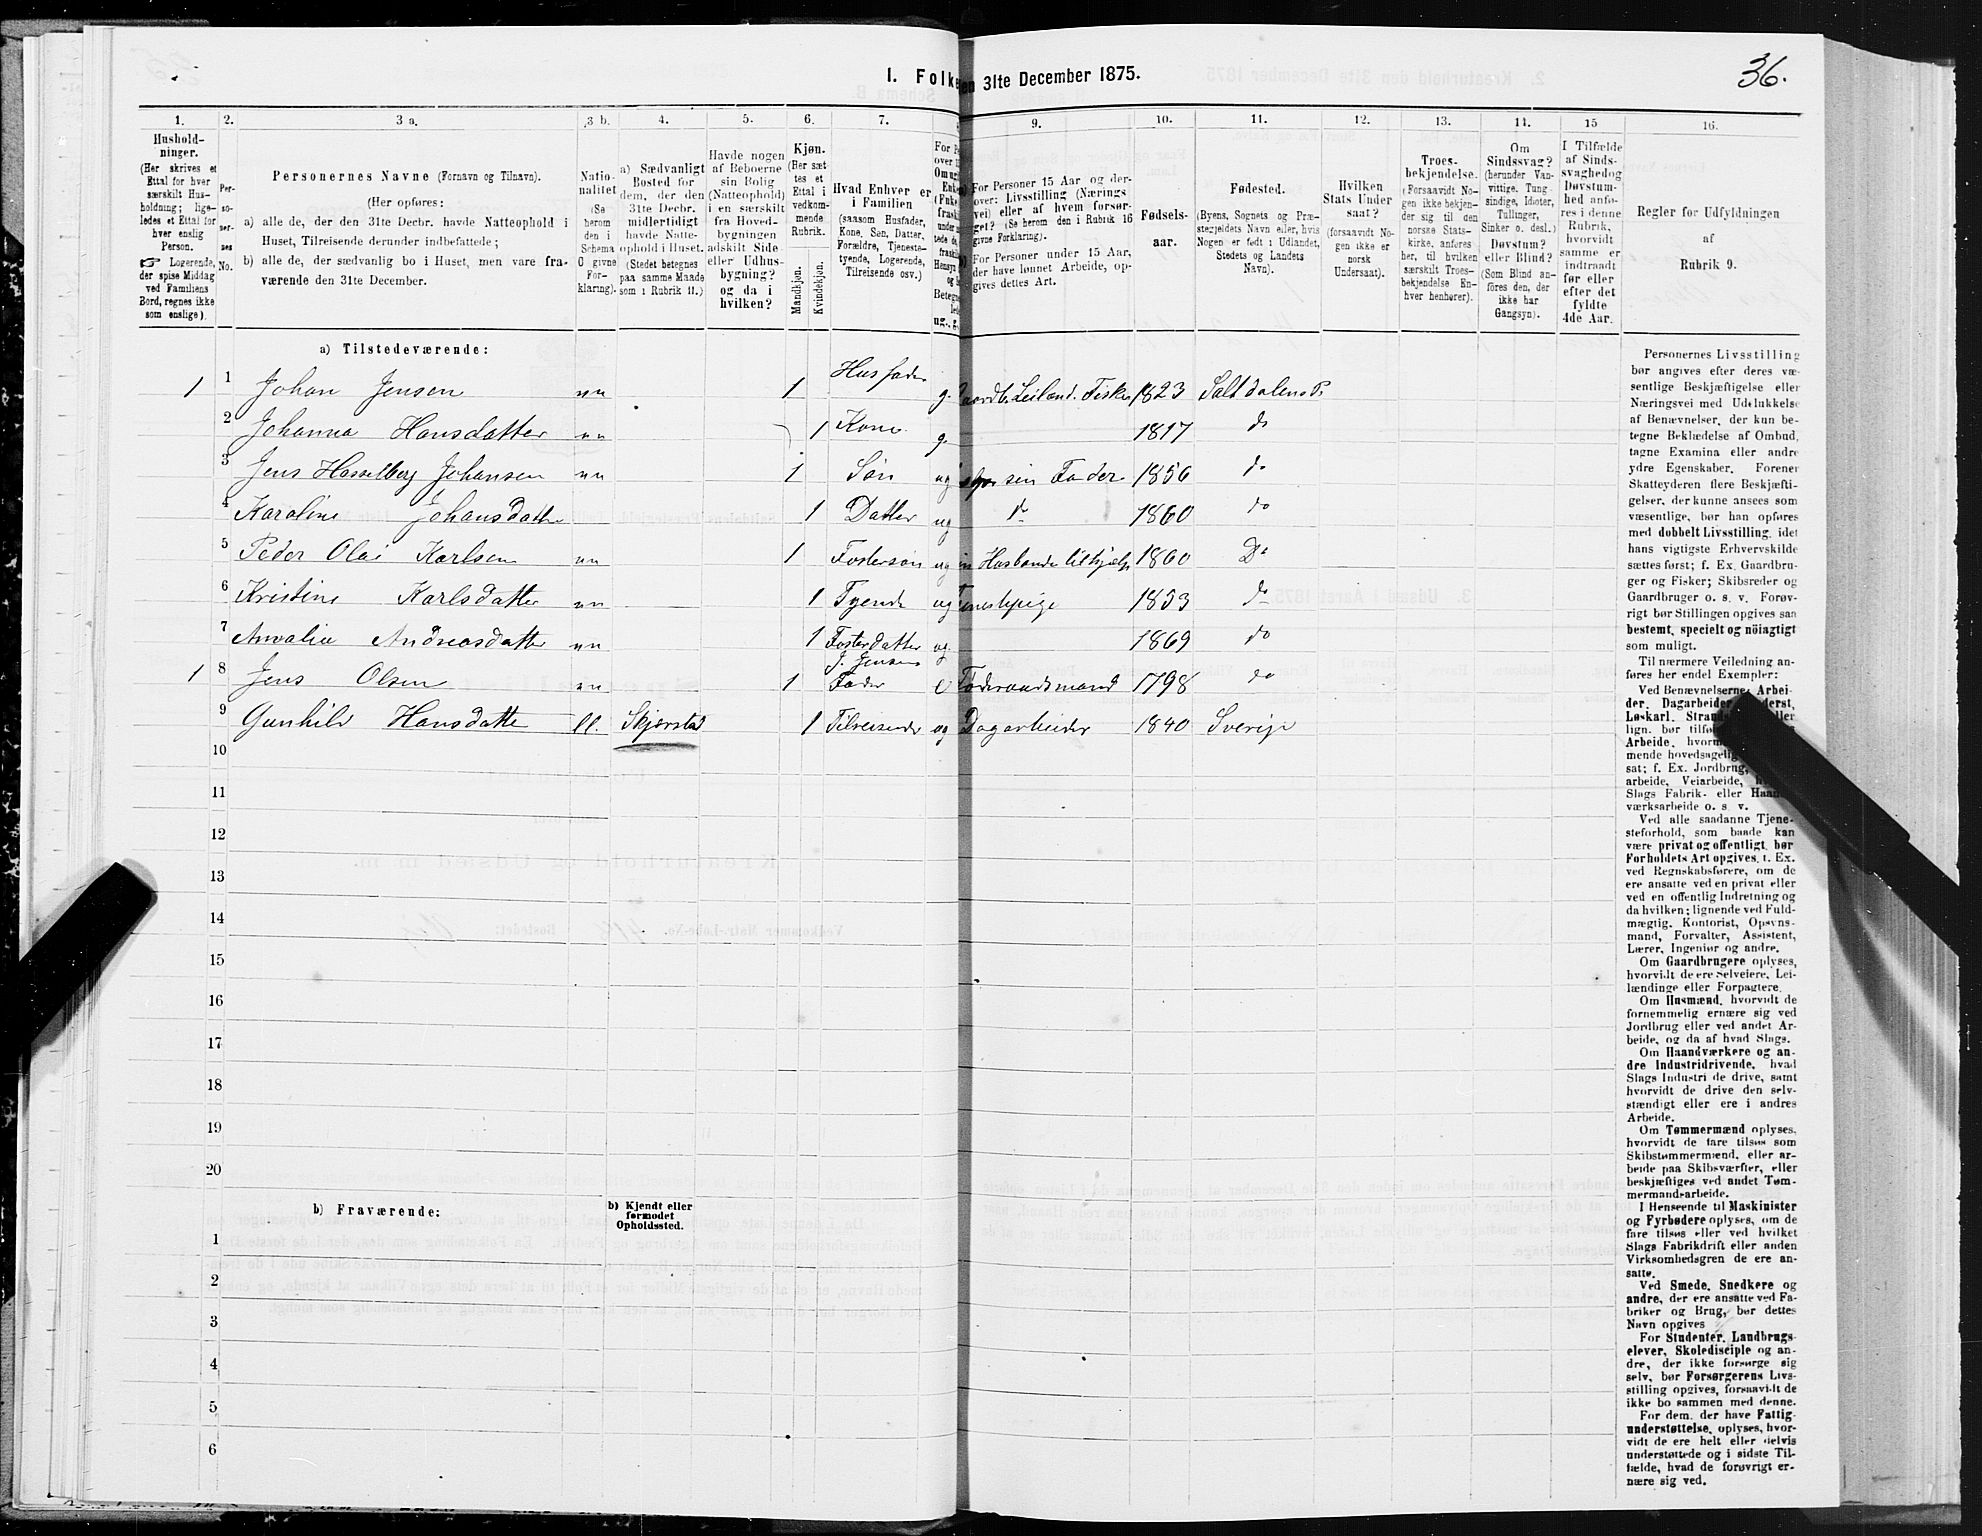 36.
I. Folke en 31te December 1875.
1. 2. 3 a. 3 b. 4. 5. 6. 7. 8 9. 10. 11. 12. 13. 14. 15 16.
Hushold-
ninger.
(Her skrives et
Ettal for hver
særskilt Hus-
holdning; lige-
ledes et Ettal for
hver enslig
Person.
☞ Logerende,
der spise Middag
ved Familiens
Bord, regnes ikke
som enslige).
Per-
so-
ner-
nes
No.
Personernes Navne (Fornavn og Tilnavn).
(Her opføres:
a) alle de, der den 31te Decbr. havde Natteophold i
Huset, Tilreisende derunder indbefattede;
b) alle de, der sædvanlig bo i Huset, men vare fra-
værende den 31te December.
Natio-
nalitet
(Se
herom
den i
Schema
O givne
For-
klaring).
a) Sædvanligt
Bosted for
dem, der den
31te Decbr.
midlertidigt
havde Natte-
ophold i Huset.
(Stedet betegnes
paa samme Maade
som i Rubrik 11.)
Havde nogen
af Beboerne
sin Bolig
(Natteophold)
i en særskilt
fra Hoved-
bygningen
adskilt Side
eller Udhus-
bygning?
og da i
hvilken?
Kjøn.
(Her sæt-
tes et
Ettal i
vedkom-
mende
Rubrik.
Mandkjøn.
Kvindekjøn.
Hvad Enhver er
i Familien
(saasom Husfader,
Kone, Søn, Datter,
Forældre, Tjeneste-
tyende, Logerende,
Tilreisende osv.)
For Personer 15 Aar og der-
over: Livsstilling (Nærings
vei) eller af hvem forsør-
get? (Se herom den i Rubrik 16
givne Forklaring).
For Personer under 15 Aar,
der have lønnet Arbeide, op-
gives dettes Art.
Fødsels-
aar.
Fødested.
(Byens, Sognets og Præ-
stegjeldets Navn eller, hvis
Nogen er født i Udlandet,
Stedets og Landets
Navn).
Hvilken
Stats Under
saat?
(forsaavidt No-
gen ikke er
norsk
Undersaat).
Troes-
bekjendelse.
(Forsaavidt No-
gen ikke bekjen-
der sig til den
norske Stats-
kirke, anføres
her, til hvilken
særskilt Troes-
bekjendelse En-
hver henhører).
Om
Sindssvag?
(herunder Van-
vittige, Tung-
sindige, Idioter,
Tullinger,
Sinker o. desl.)
Døvstum?
eller Blind?
(Som Blind an-
føres den, der
ikke har
Gangsyn).
I Tilfælde
af Sinds-
svaghed og
Døvstum-
hed anfø-
res i denne
Rubrik,
hvorvidt
samme er
indtraadt
før eller
efter det
fyldte
4de Aar.
Regler for Udfyldningen
af
Rubrik 9.
a) Tilstedeværende:
1 1 Johan Jensen nn 1 Husfader g. Leiland. Fisker 1823 Saltdalens P.
2 Johanna Hansdatter nn 1 Kone g. 1817 do
3 Jens Hasselberg Johansen nn 1 Søn ug sin Fader 1856 do
4 Karoline Johansdatter 1 Datter ug do 1860 do
5 Peder Olai Karlsen nn 1 Fostersøn ug Husbonde til hjælp 1860 Do
6 Kristine Karlsdatter nn 1 Tyende ug Tjenestepige 1853 do
7 Amalia Andreasdatter nn 1 Fosterdatter ug 1869 do
1 8 Jens Olsen nn 1 J. Jensens Fader e Føderaadsmand 1798 do
9 Gunhild Hansdatter ll. Skjerstad 1 Tilreisende ug Dagarbeider 1840 Sverige
10
11
12
13
14
15
16
17
18
19
20
b) Fraværende:
b) Kjendt eller
formodet
Opholdssted.
1
2
3
4
5
6
Personernes Livsstilling
bør angives efter deres væ-
sentlige Beskjæftigelse eller
Næringsvei med Udelukkelse
af Benævnelser, der kun be-
tegne Beklædelse af Ombud,
tagne Examina eller andre
ydre Egenskaber. Forener
Skatteyderen flere Beskjæfti-
gelser, der kunne ansees som
væsentlige, bør han opføres
med dobbelt Livsstilling, idet
hans vigtigste Erhvervskilde
sættes først; f. Ex. Gaardbru-
ger og Fisker; Skibsreder og
Gaardbruger o. s. v. Forøv-
rigt bør Stillingen opgives saa
bestemt, specielt og nöiagtigt
som muligt.
Til nærmere Veiledning an-
føres her endel Exempler:
Ved Benævnelserne: Arbei-
der, Dagarbeider,
Løskarl, Strand
lign. bør tilføi
Arbeide, hvor
mende hovedsagelig
sat; f. Ex. Jordbrug,
arbeide, Veiarbeide,
Slags Fabrik- eller Haand-
værksarbeide o. s. v.
Ved alle saadanne Tjene-
steforhold, som baade kan
være privat og offentligt, bør
Forholdets Art opgives, t. Ex.
ved Regnskabsførere, om de
ere ansatte ved en privat eller
ved en offentlig Indretning og
da hvilken; lignende ved Fuld-
mægtig, Kontorist, Opsyns-
mand, Forvalter, Assistent,
Lærer, Ingeniør og andre.
Om Gaardbrugere oplyses,
hvorvidt de ere Selveiere, Lei-
lændinge eller Forpagtere.
Om Husmænd, hvorvidt de
fornemmelig ernære sig ved
Jordbrug eller ved andet Ar-
beide, og da af hvad Slags.
Om Haandværkere og an-
dre Industridrivende, hvad
Slags Industri de drive, samt
hvorvidt de drive den selv-
stændigt eller ere i andres
Arbeide.
Om Tømmermænd oplyses,
hvorvidt de fare tilsøs som
Skibstømmermænd, eller ar-
beide paa Skibsværfter, eller
beskjæftiges ved andet Tøm-
mermandsarbeide.
I Henseende til Maskinister
og Fyrbødere oplyses, om de
fare tilsøs eller ved hvilket
Slags Fabrikdrift eller anden
Virksomhedsgren de ere an-
satte.
Ved Smede, Snedkere og
andre, der ere ansatte ved Fa-
briker og Brug, bør dettes
Navn opgives
For Studenter, Landbrugs-
elever, Skoledisciple og an-
dre, der ikke forsørge sig
selv, bør Forsørgerens Livs-
stilling opgives, forsaavidt de
ikke bo sammen med denne.
For dem, der have Fattig-
understøttelse, oplyses, hvor-
vidt de ere helt eller delvis
understøttede og i sidste Til-
fælde, hvad de forøvrigt er-
nære sig ved.